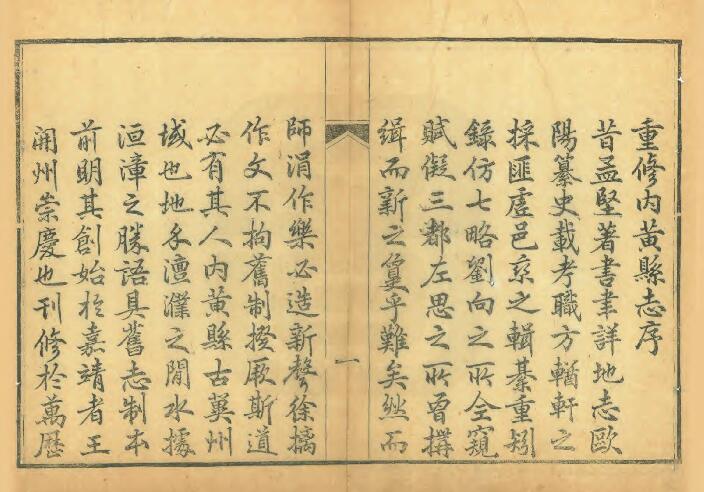 重修内黄縣志序
昔孟堅著書聿詳地志歐
陽纂史載考職方輶軒之
採匪虛邑乘之輯綦重矧
錄仿七略劉向之所仝窺
賦儗三都左思之所曾撰
緝而新之夐乎難矣然而
一
師涓作樂必造新聲徐摛
作文不拘舊制揆厥斯道
必有其人内黄縣古冀州
域也地介澶濮之閒水據
洹漳之勝語具舊志制本
前明其創始於嘉靖者王
開州崇慶也刊修於萬歷